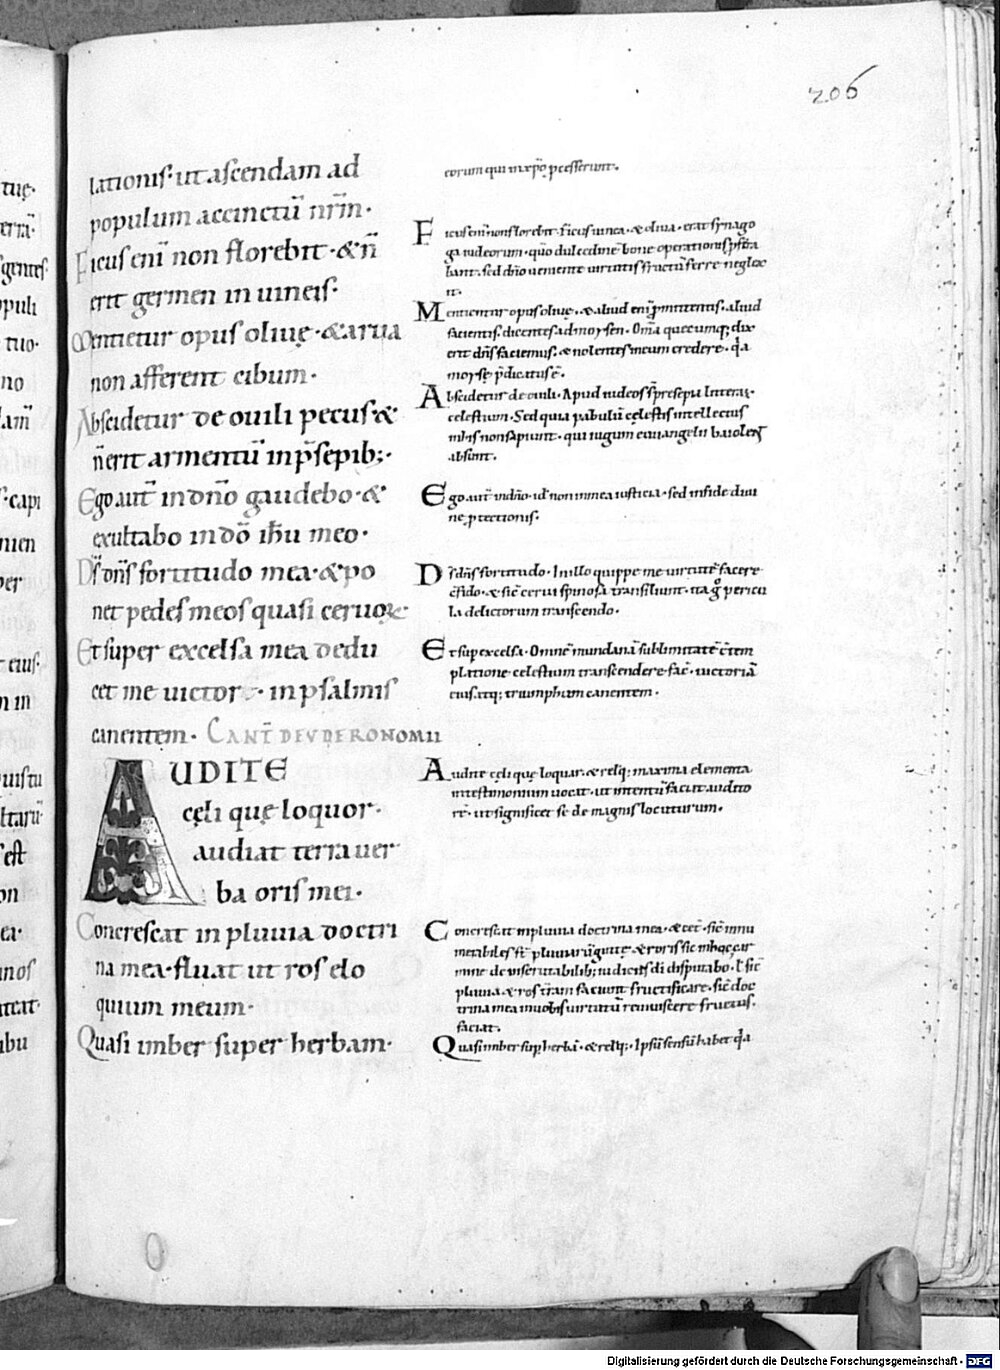 206
lationis· ut ascendam ad
populum accinctū nr̄m·
Ficus eni̅ non florebit· & n̄
erit germen in uineis·
Mentietur opus oliuę· & arua
non afferent cibum·
Abscidetur de ouili pecus &
n̄ erit armentū in p̄sepib;·
Ego aut̄ in dn̄o gaudebo· &
exultabo in dō ih̄u meo·
Ds̄ dn̄s fortitudo mea· & po
net pedes meos quasi ceruorū·
Et super excelsa mea dedu
cet me uictor· in psalmis
canentem· CANT̄ DEUDERONOMII
AUDITE
cęli quę loquor·
audiat terra uer
ba oris mei·
Concrescat in pluuia doctri
na mea· fluat ut ros elo
quium meum·
Quasi imber super herbam·
eorum qui in xp̄o p̄cesserunt·
Ficus eni̅ non florebit· Ficus uinea· & oliua· erat synago
ga iudeorum· quō dulcedinē bone operationis
bant· sed dn̄o uemente uirtutis fructū ferre neglex
er̄·
Mentientur opus oliuę·
facientis· dicentes ad moysen· Om̄a quecumq; dix
erit dn̄s faciemus· & nolentes in eum credere· q̄a
moyse p̄dicatus ē·
Abscidetur de ouili· Apud iudeos p̄sepia litterar̄
celestium· Sed quia pabulū cęlestis intellectus
nihil non sapiunt· qui iugum euuangelii baiolent
absunt·
Ego aut̄ in dn̄o· id ̄ non in mea iusticia· sed in fide diui
ne p̄tectionis·
Ds̄ dn̄s fortitudo· In illo quippe me uirtutē facere
c̄fido· & sic̄ cerui spinosa transiliunt· ita g̊ pericu
la delictorum transcendo·
Et sup excelsa· Omnē mundanā sublimitatē c̄tem
platione celestium transcendere fac̄· uictoriā
eius atq; triumphum canentem·
Audite cęli quę loquar· & reliq; maxima elementa
in testimonium uocat· ut intentū faciat audito
rē· ut significet se de magnis locuturum·
Concrescat in pluuia doctrina mea· & cet̄· sic̄ innu
merabiles st̄ pluuiarū guttę & roris sic
mine de inserutabilib; iudiciis di disputabo· ł sic̄
pluuia & ros t̄ram faciunt fructificare· sic̄ doc
trina mea in uobis uirtutū reuiuiscere fructus·
faciat·
Quasi imber sup herbā· & reliq;· Ipsū sensū habet q̄a
Digitalisierung gefördert durch die Deutsche Forschungsgemeinschaft · DFG